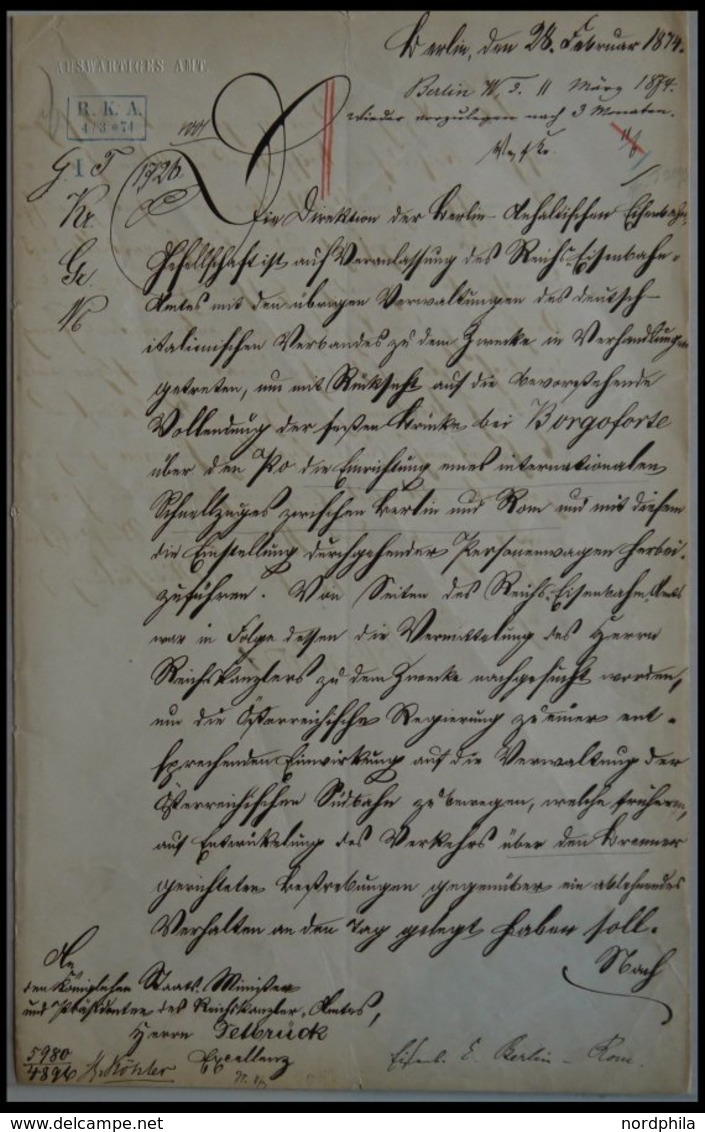 Berlin, den 28. Februar 1874.
AUSWÄRTIGES AMT.
Berlin W. d. 11 März 1874.
wieder vorzulegen nach 3 Monaten.
R. K. A.
4/3 74
1726
Die Direktion der Berlin-Anhaltischen Eisenbahn-
Gesellschaft ist auf Veranlassung des Reichs-Eisenbahn-
Amtes mit den übrigen Verwaltungen des deutsch-
italienischen Verbandes zu dem Zwecke in Verhandlungen
getreten, um mit Rücksicht auf die bevorstehende
Vollendung der festen Brücke bei Borgoforte
über den Po die Einrichtung eines internationalen
Schnellzuges zwischen Berlin und Rom und mit diesem
die Einstellung durchgehender Personenwagen herbei-
zuführen. Von Seiten des Reichs-Eisenbahn-Amts
war in Folge dessen die Vermittelung des Herrn
Reichskanzlers zu dem Zwecke nachgesucht worden,
um die Österreichische Regierung zu einer ent-
sprechenden Einwirkung auf die Verwaltung der
Österreichischen Südbahn zu bewegen, welche früheren,
auf Entwickelung des Verkehrs über den Brenner
gerichteten Bestrebungen gegenüber ein ablehnendes
Verhalten an den Tag gelegt haben soll.
Nach
An
den Königlichen Staats-Minister
und Präsidenten des Reichskanzler-Amtes,
Herrn Delbrück
Excellenz
5980
4896
Eisenb. E. Berlin - Rom.
nordphila